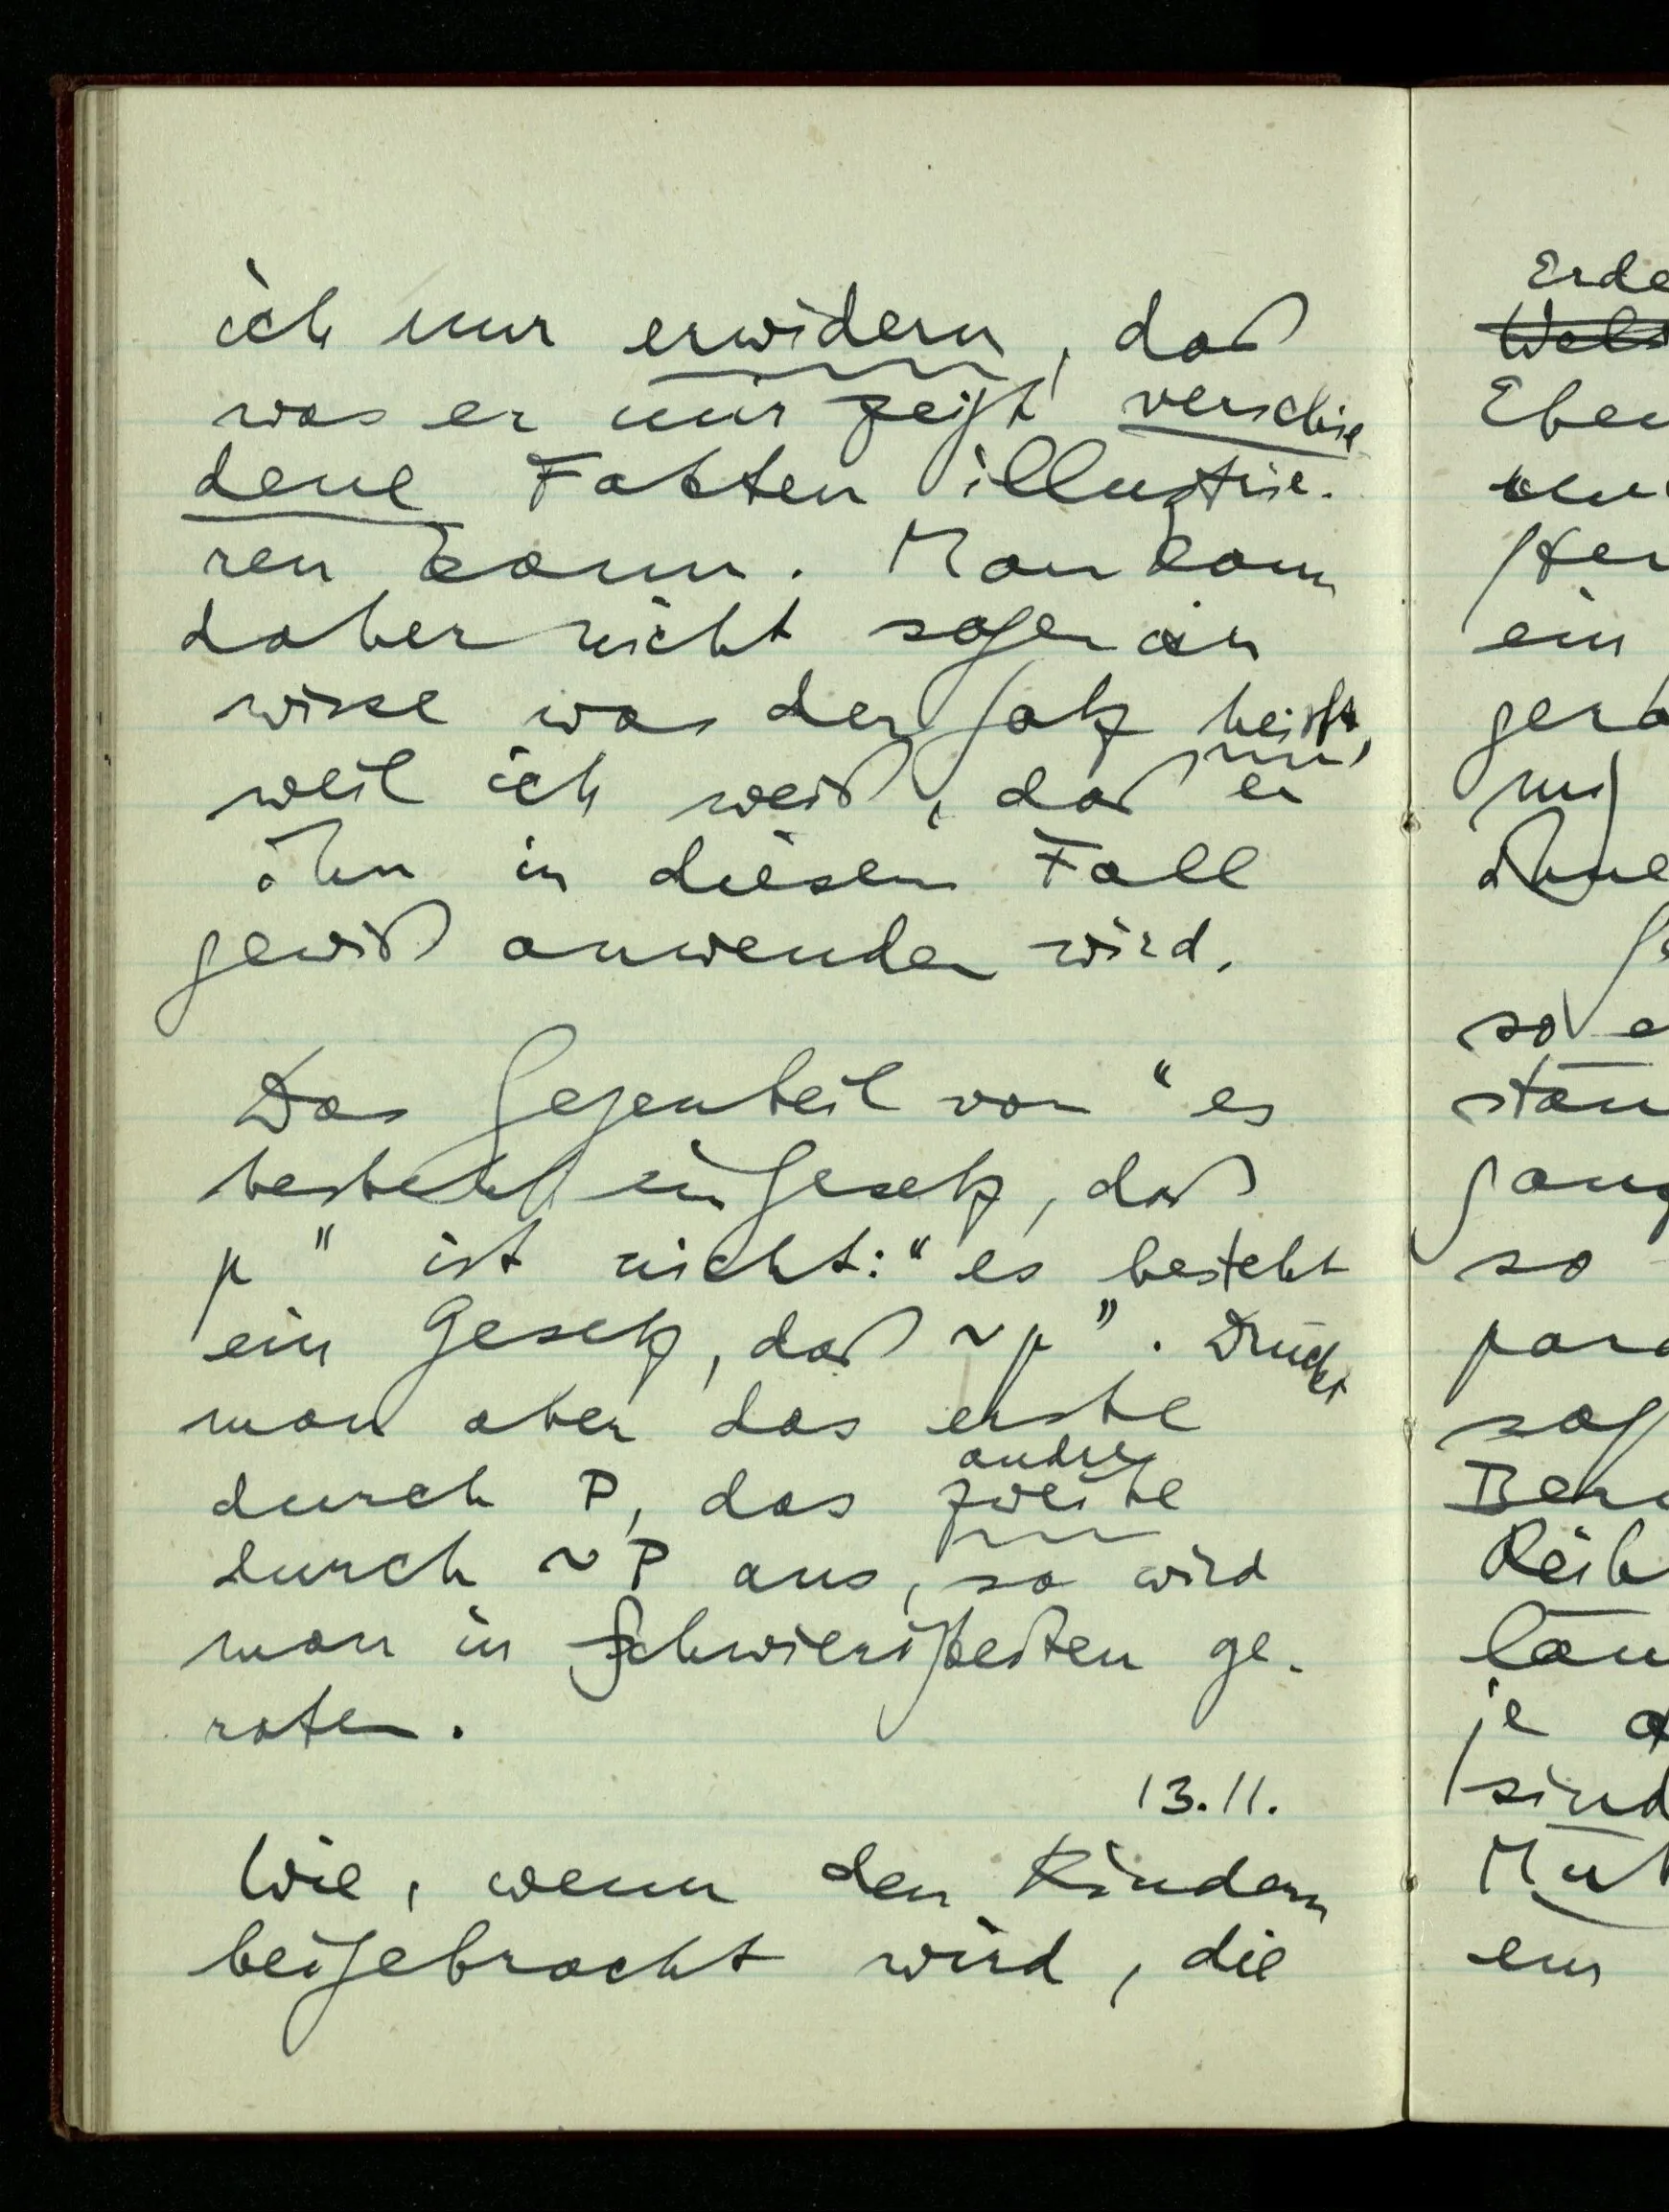 ich nur erwidern, daß
was er mir zeigt verschie
dene Fakten illustrie-
ren kann. Man kann
daher nicht sagen ich
wisse was der Satz heißt,
weil ich weiß, daß er
ihn in diesem Fall
gewiß anwenden wird.
Das Gegenteil von "es
besteht ein Gesetz, daß
p" ist nicht: "es besteht
ein Gesetz, daß ~p". Drückt
man aber das erste
andre
durch P, das zweite
durch ~P aus, so wird
man in Schwierigkeiten ge-
raten.
13.11.
Wie, wenn den Kindern
beigebracht wird, die
Erde
Welt
Eben
ein
so
so
je
sind